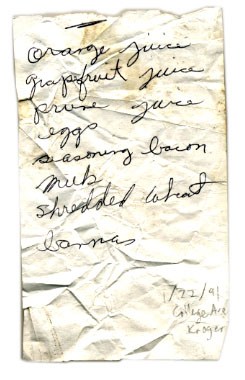 orange juice
grapefruit juice
prune juice
eggs
seasoning bacon
milk
shredded wheat
bannas
1/22/91
College Ave
Kroger